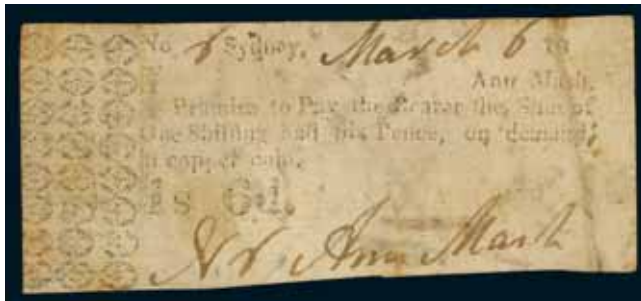 No 8 Sydney, March 6 18
Ann Mash,
I Promise to Pay the Bearer the Sum of
One Shilling and six Pence, on demand,
in copper coin.
1s 6d.
N 8 Ann Mash